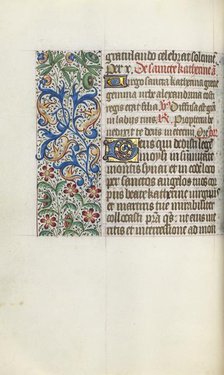 gratulando celebrat solenn
Per x. De sancta katherina a.
Virgo sancta katherina grecie
gemma urbe alexandrina costi
regis erat filia V. Diffusa est gra
in labijs tuis. R. Propterea be
nedixit te deus in eternu Oro
Deus qui dedisti lege
moysi in summitate
montis synai et in eode loco
per sanctos angelos tuos cor
pus beate katherine virginis
et martiris tue mirabiliter
collocasti pra qs. ut eius me
ritis et intercessione ad mon